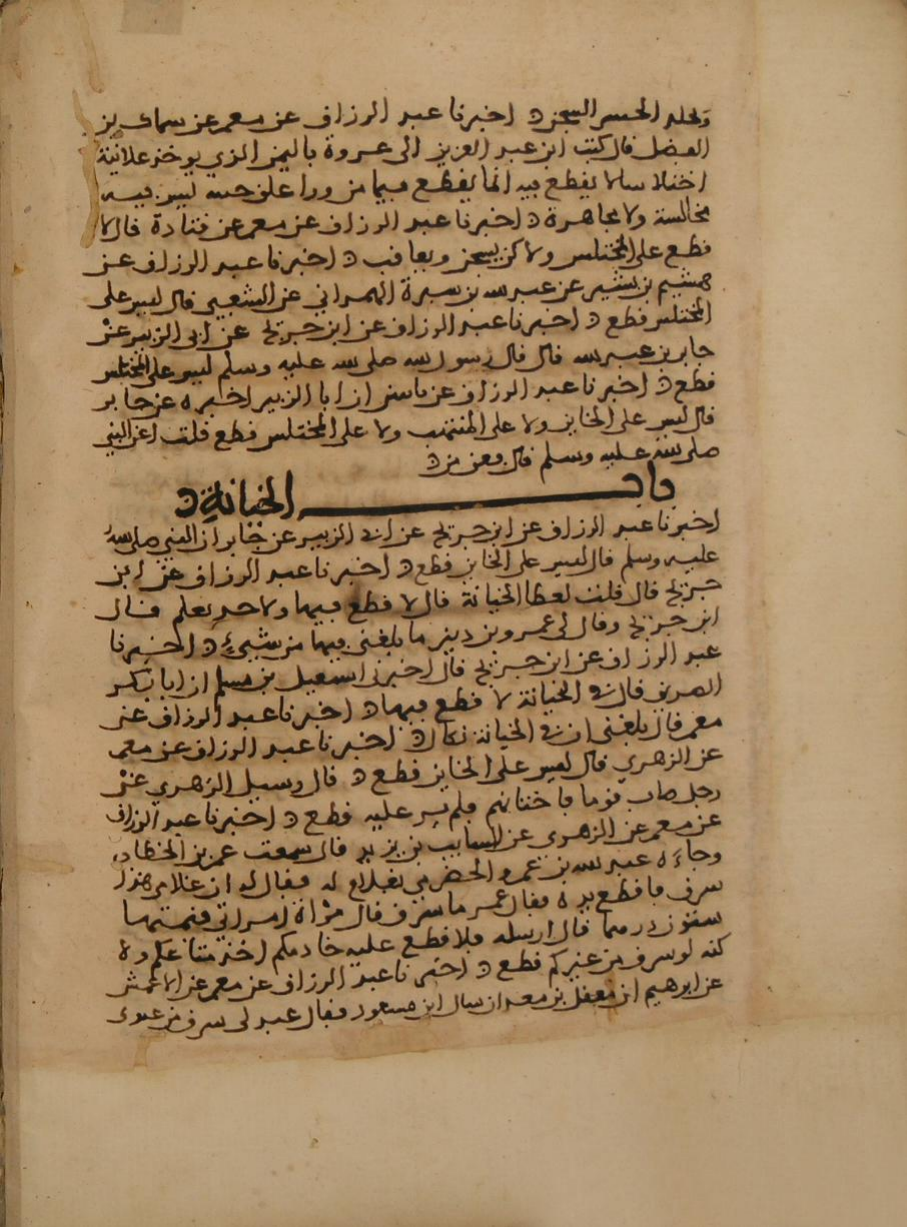 وخلده الحبس السجن اخبرنا عبد الرزاق عن معمر عن سماك بن
الفضل قال كتب ابن عبد العزيز الى عروة باليمن الذي يوخذ علانية
اختلاسا لا يقطع فيه انما يقطع فيما من ورا غلق ليس فيه
مخالسة ولا مجاهرة اخبرنا عبد الرزاق عن معمر عن قتادة قال لا
قطع على المختلس ولاكن يسجن ويعاقب اخبرنا عبد الرزاق عن
هشيم بن بشير عن عبد الله بن سبرة الهمداني عن الشعبي قال ليس على
المختلس قطع اخبرنا عبد الرزاق عن ابن جريج عن ابى الزبير عن
جابر بن عبد الله قال قال رسول الله صلى الله عليه وسلم ليس على المختلس
قطع اخبرنا عبد الرزاق عن ياسين ان ابا الزبير اخبره عن جابر
قال ليس على الخاين ولا على المنتهب ولا على المختلس قطع قلت اعن النبي
صلى الله عليه وسلم قال فعن من
باب الخيانة
اخبرنا عبد الرزاق عن ابن جريج عن ابي الزبير عن جابر ان النبي صلى الله
عليه وسلم قال ليس على الخاين قطع اخبرنا عبد الرزاق عن ابن
جريج قال قلت لعطا الخيانة قال لا قطع فيها ولا حد يعلم قال
ابن جريج وقال لى عمرو بن دينر ما بلغنى فيها من شيء اخبرنا
عبد الرزاق عن ابن جريج قال اخبرني اسمعيل بن مسلم ان ابا بكر
الصديق قال في الخيانة لا قطع فيها اخبرنا عبد الرزاق عن
معمر قال بلغنى ان في الخيانة نكال اخبرنا عبد الرزاق عن معمر
عن الزهري قال ليس على الخاين قطع قال وسيل الزهري عن
رجل ضاف قوما فاختانهم فلم ير عليه قطع اخبرنا عبد الرزاق
عن معمر عن الزهري عن السايب بن يزيد قال سمعت عمر بن الخطاب
وجاءه عبد الله بن عمرو الحضرمي بغلام له فقال له ان غلامى هذا
سرق فاقطع يده فقال عمر ما سرق قال مراة امراتي قيمتها
ستون درهما قال ارسله فلا قطع عليه خادمكم اخذ متاعكم ولا
كنه لو سرق من غيركم قطع اخبرنا عبد الرزاق عن معمر عن الاعمش
عن ابرهيم ان معقل بن معدان سال ابن مسعود فقال عبد لى سرق من عبدى